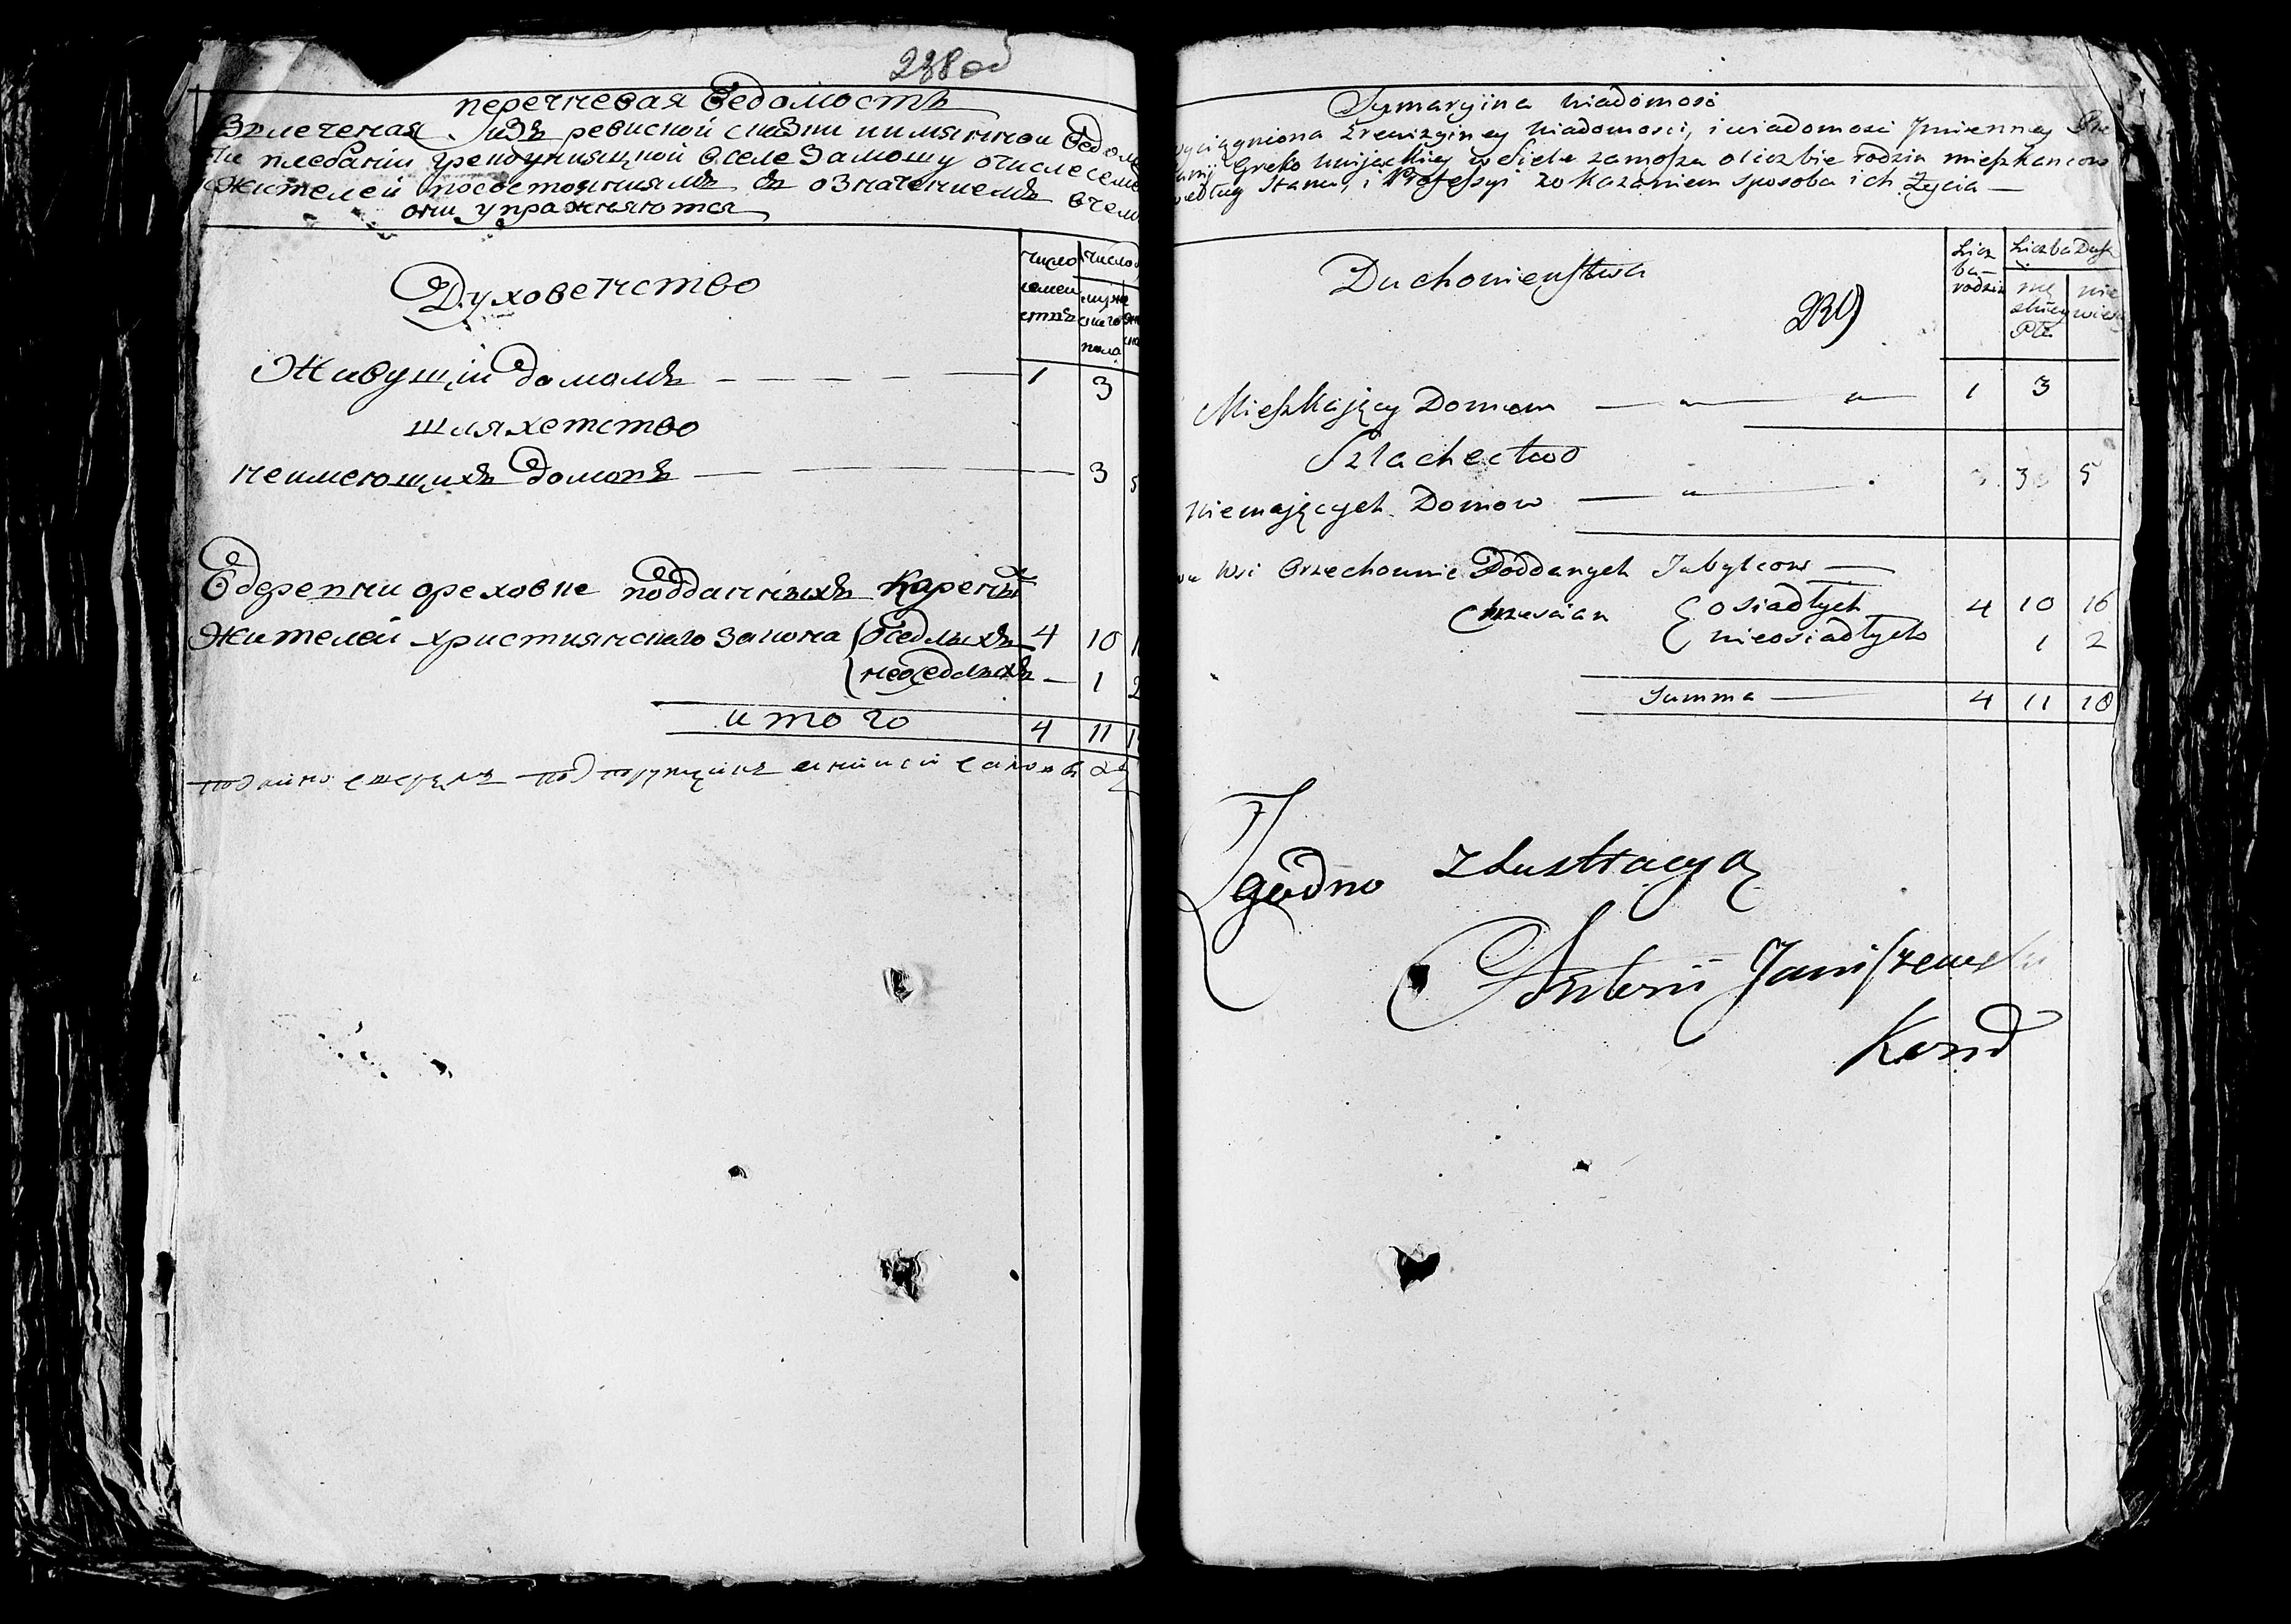 238 об
перечневая Ведомость
Влеченая изъ ревиской сказки и имянной Ведом
плебаніи грекоуниацкой в селе Замошу о числе семе
жителей по состояниямъ съ означениемъ в чем
они упражняются
число число
семей мужс
ствъ каго
пола
Духовенство
Живущіи домомъ — — — — — 1 3
шляхетство
неимеющихъ домовъ — — — 3 5
В деревни ореховне подданныхъ Каренных
Жителей християнскаго закона (оседлыхъ 4 10 1
(неоседлыхъ — 1 2
итого 4 11 1
Sumaryina wiadomość
wyciągniona z rewizyiney wiadomości, i wiadomości Jmienney Ple
banij Greko Unijackiey w Siele Zamosza o liczbie rodzin mieszkancow
według Stanu, i Professyi z okazaniem sposobu ich Życia —
Licz
ba
rodzin
Liczba Dusz
mę
skiey
Płci
nie
wieś
Duchowieństwa
239
Mieszkający Domem — " — " — 1 3
Szlachectwo
Niemających Domow — " — 3 5
we Wsi Orzechownie Poddanych Jubylcow —
Chrześcian { osiadłych 4 10 16
{ nieosiadłych 1 2
Summa — 4 11 18
Zgodno z Lustracyą
Antoni Janiszewski